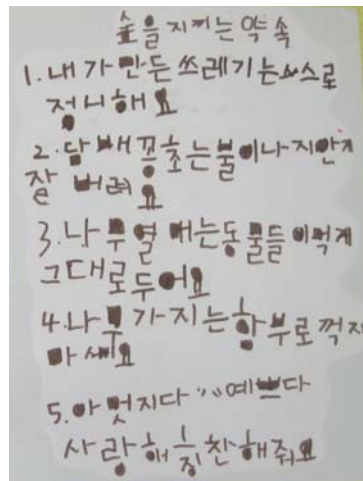 숲을 지키는 약속
1. 내가 만든 쓰레기는 스스로
정니해요
2. 담배꽁초는 불이나지안게
잘 버려요
3. 나무열매는동물들이먹게
그대로두어요
4. 나무가지는 함부로 꺽지
마세요
5. 아 멋지다 "예쁘다
사랑해 칭찬해줘요